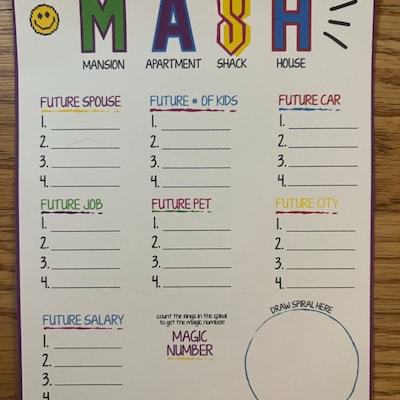 MASH
MANSION APARTMENT SHACK HOUSE
FUTURE SPOUSE FUTURE # OF KIDS FUTURE CAR
1. 1. 1.
2. 2. 2.
3. 3. 3.
4. 4. 4.
FUTURE JOB FUTURE PET FUTURE CITY
1. 1. 1.
2. 2. 2.
3. 3. 3.
4. 4. 4.
FUTURE SALARY
1.
2.
3.
4.
count the rings in the spiral
to get the magic number!
MAGIC
NUMBER
DRAW SPIRAL HERE